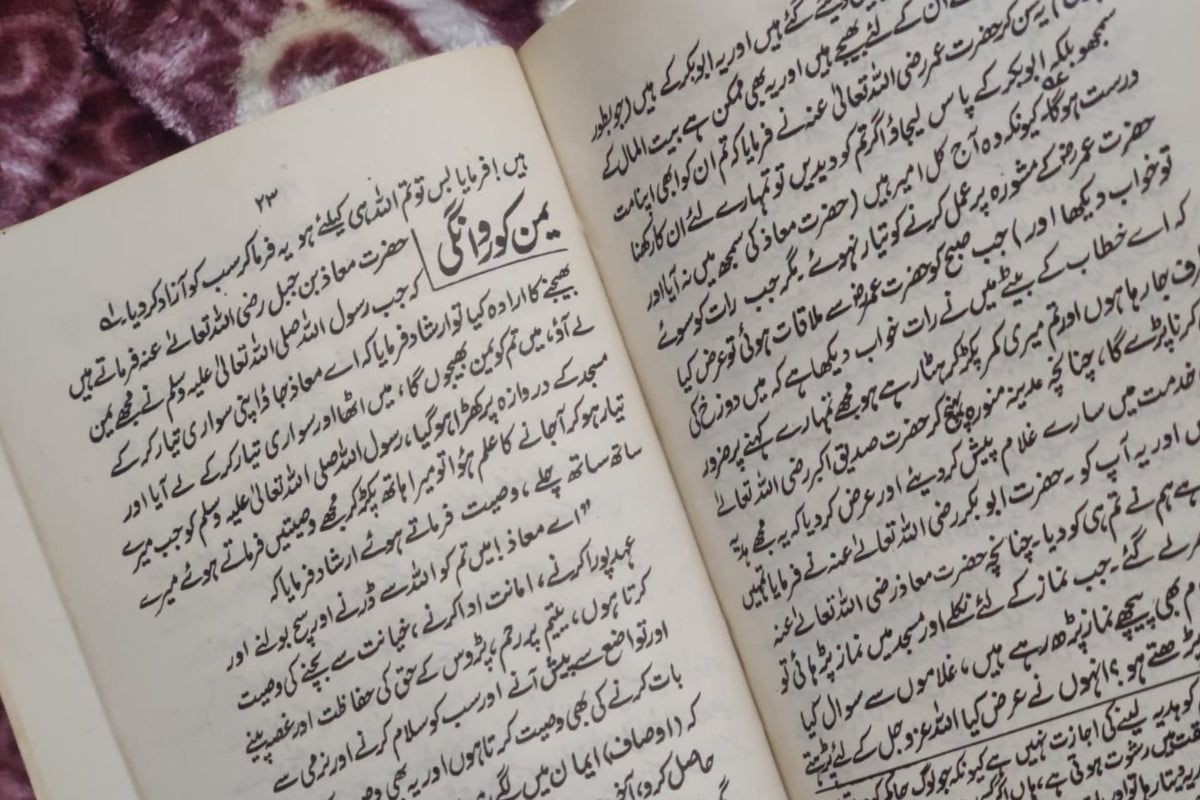 دیئے گئے ہیں اور یہ ابوبکر کے ہیں (جو بطور
ان کے لئے بھیجے ہیں اور یہ بھی ممکن ہے بیت المال کے
یہ سن کر حضرت عمر رضی اللہ تعالیٰ عنہ نے فرمایا کہ تم ان کو ابھی اپنا مت
سمجھو بلکہ ابوبکر کے پاس لیجاؤ اگر تم کو دیدیں تو تمہارے لئے ان کا رکھنا
درست ہوگا۔ کیونکہ وہ آج کل امیر ہیں (حضرت معاذ کی سمجھ میں نہ آیا اور
حضرت عمر رضؓ کے مشورہ پر عمل کرنے کو تیار نہوئے۔ مگر جب رات کو سوئے
تو خواب دیکھا اور) جب صبح کو حضرت عمرؓ سے ملاقات ہوئی تو عرض کیا
کہ اے خطاب کے بیٹے میں نے رات خواب دیکھا ہے کہ میں دوزخ کی
جا رہا ہوں اور تم میری کمر پکڑ کر ہٹا رہے ہو مجھے تمہارے کہنے پر ضرور
کرنا پڑے گا، چنانچہ مدینہ منورہ پہنچ کر حضرت صدیق اکبر رضی اللہ تعالےٰ
خدمت میں سارے غلام پیش کردیئے اور عرض کردیا کہ یہ مجھے ہدیہ
اور یہ آپ کو۔ حضرت ابوبکر رضی اللہ تعالےٰ عنہ نے فرمایا تمہیں
ہم نے تم ہی کو دیا۔ چنانچہ حضرت معاذ رضی اللہ تعالےٰ عنہ
لے گئے۔ جب نماز کے لئے نکلے اور مسجد میں نماز پڑھائی تو
بھی پیچھے نماز پڑھ رہے ہیں، غلاموں سے سوال کیا
پڑھتے ہو؟ انہوں نے عرض کیا اللہ عزوجل کے لئے پڑھتے
کو ہدیہ لینے کی اجازت نہیں ہے کیونکہ جو لوگ
میں رشوت ہوتی ہے، ہاں اگر
۲۳
ہیں! فرمایا بس تو تم اللہ ہی کیلئے ہو یہ فرما کر سب کو آزاد کردیا۔ لے
یمن کو روانگی
حضرت معاذ بن جبل رضی اللہ تعالےٰ عنہ فرماتے ہیں
کہ جب رسول اللہ صلی اللہ تعالیٰ علیہ وسلم نے مجھے یمن
بھیجنے کا ارادہ کیا تو ارشاد فرمایا کہ اے معاذ جاؤ اپنی سواری تیار کر کے
لے آؤ، میں تم کو یمن بھیجوں گا، میں اٹھا اور سواری تیار کر کے لے آیا اور
مسجد کے دروازہ پر کھڑا ہوگیا، رسول اللہ صلی اللہ تعالیٰ علیہ وسلم کو جب میرے
تیار ہو کر آجانے کا علم ہوا تو میرا ہاتھ پکڑ کر مجھے وصیتیں فرماتے ہوئے میرے
ساتھ ساتھ چلے، وصیت فرماتے ہوئے ارشاد فرمایا کہ
"اے معاذ! میں تم کو اللہ سے ڈرنے اور سچ بولنے اور
عہد پورا کرنے، امانت ادا کرنے، خیانت سے بچنے کی وصیت
کرتا ہوں، یتیم پر رحم، پڑوس کے حق کی حفاظت اور غصہ پینے
اور تواضع سے پیش آنے اور سب کو سلام کرنے اور نرمی سے
بات کرنے کی بھی وصیت کرتا ہوں اور یہ بھی
کہ (اوصاف) ایمان میں
حاصل کرو،